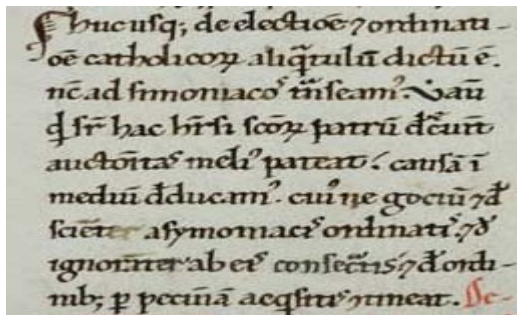 hucusq; de electiōe ⁊ ordinati-
ōe catholicoꝝ aliq̄ntulū dictū ē.
nc̄ ad simoniacos tn̄seamꝰ. Vt aū
qd̄ sr̄ hac hr̄si scōꝝ patrū dēcunt
auctoritas meliꝰ pateat: causā ī
mediū dēducamꝰ. cuiꝰ negociū ⁊ dē
sciēter a symoniacis ordinatis. ⁊ dē
ignorāter ab eis consecratis ⁊ dē ordi-
nib; ꝑ pecuniā acq̇sitis ⁊tineat. Sc-